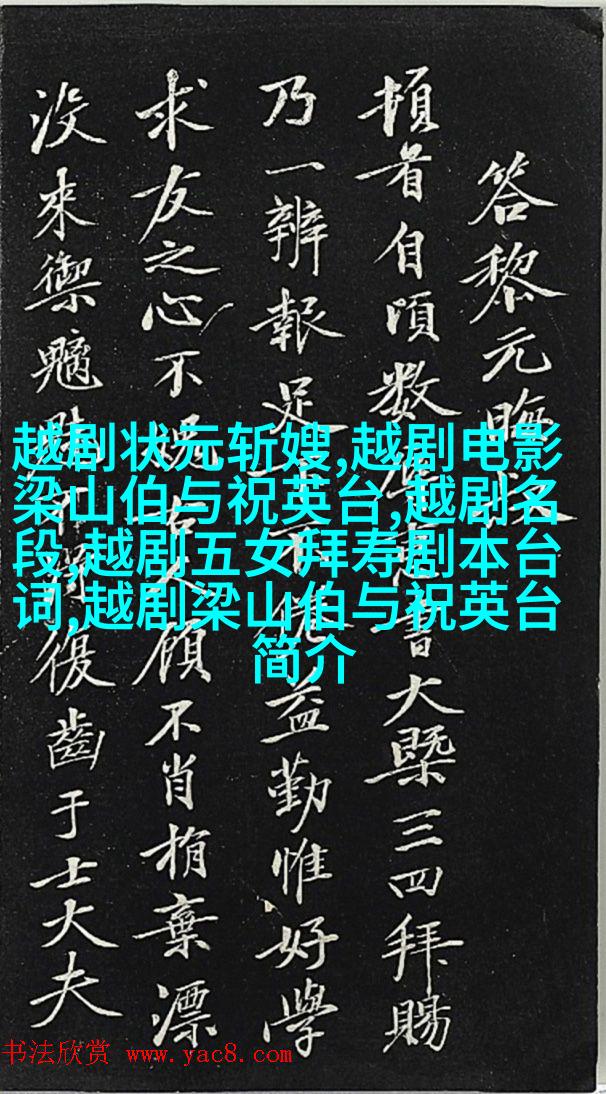 答黎元晦
頓首自頃数
大槩三四拜賜
乃一辨報足
益勤惟好學
求友之心不
顧不肖捐棄漂
没来禦魑
復齒于士大夫
越剧状元斩嫂,越剧电影
梁山伯与祝英台,越剧名
段,越剧五女拜寿剧本台
词,越剧梁山伯与祝英台
简介
书法欣赏 www.yac8.com